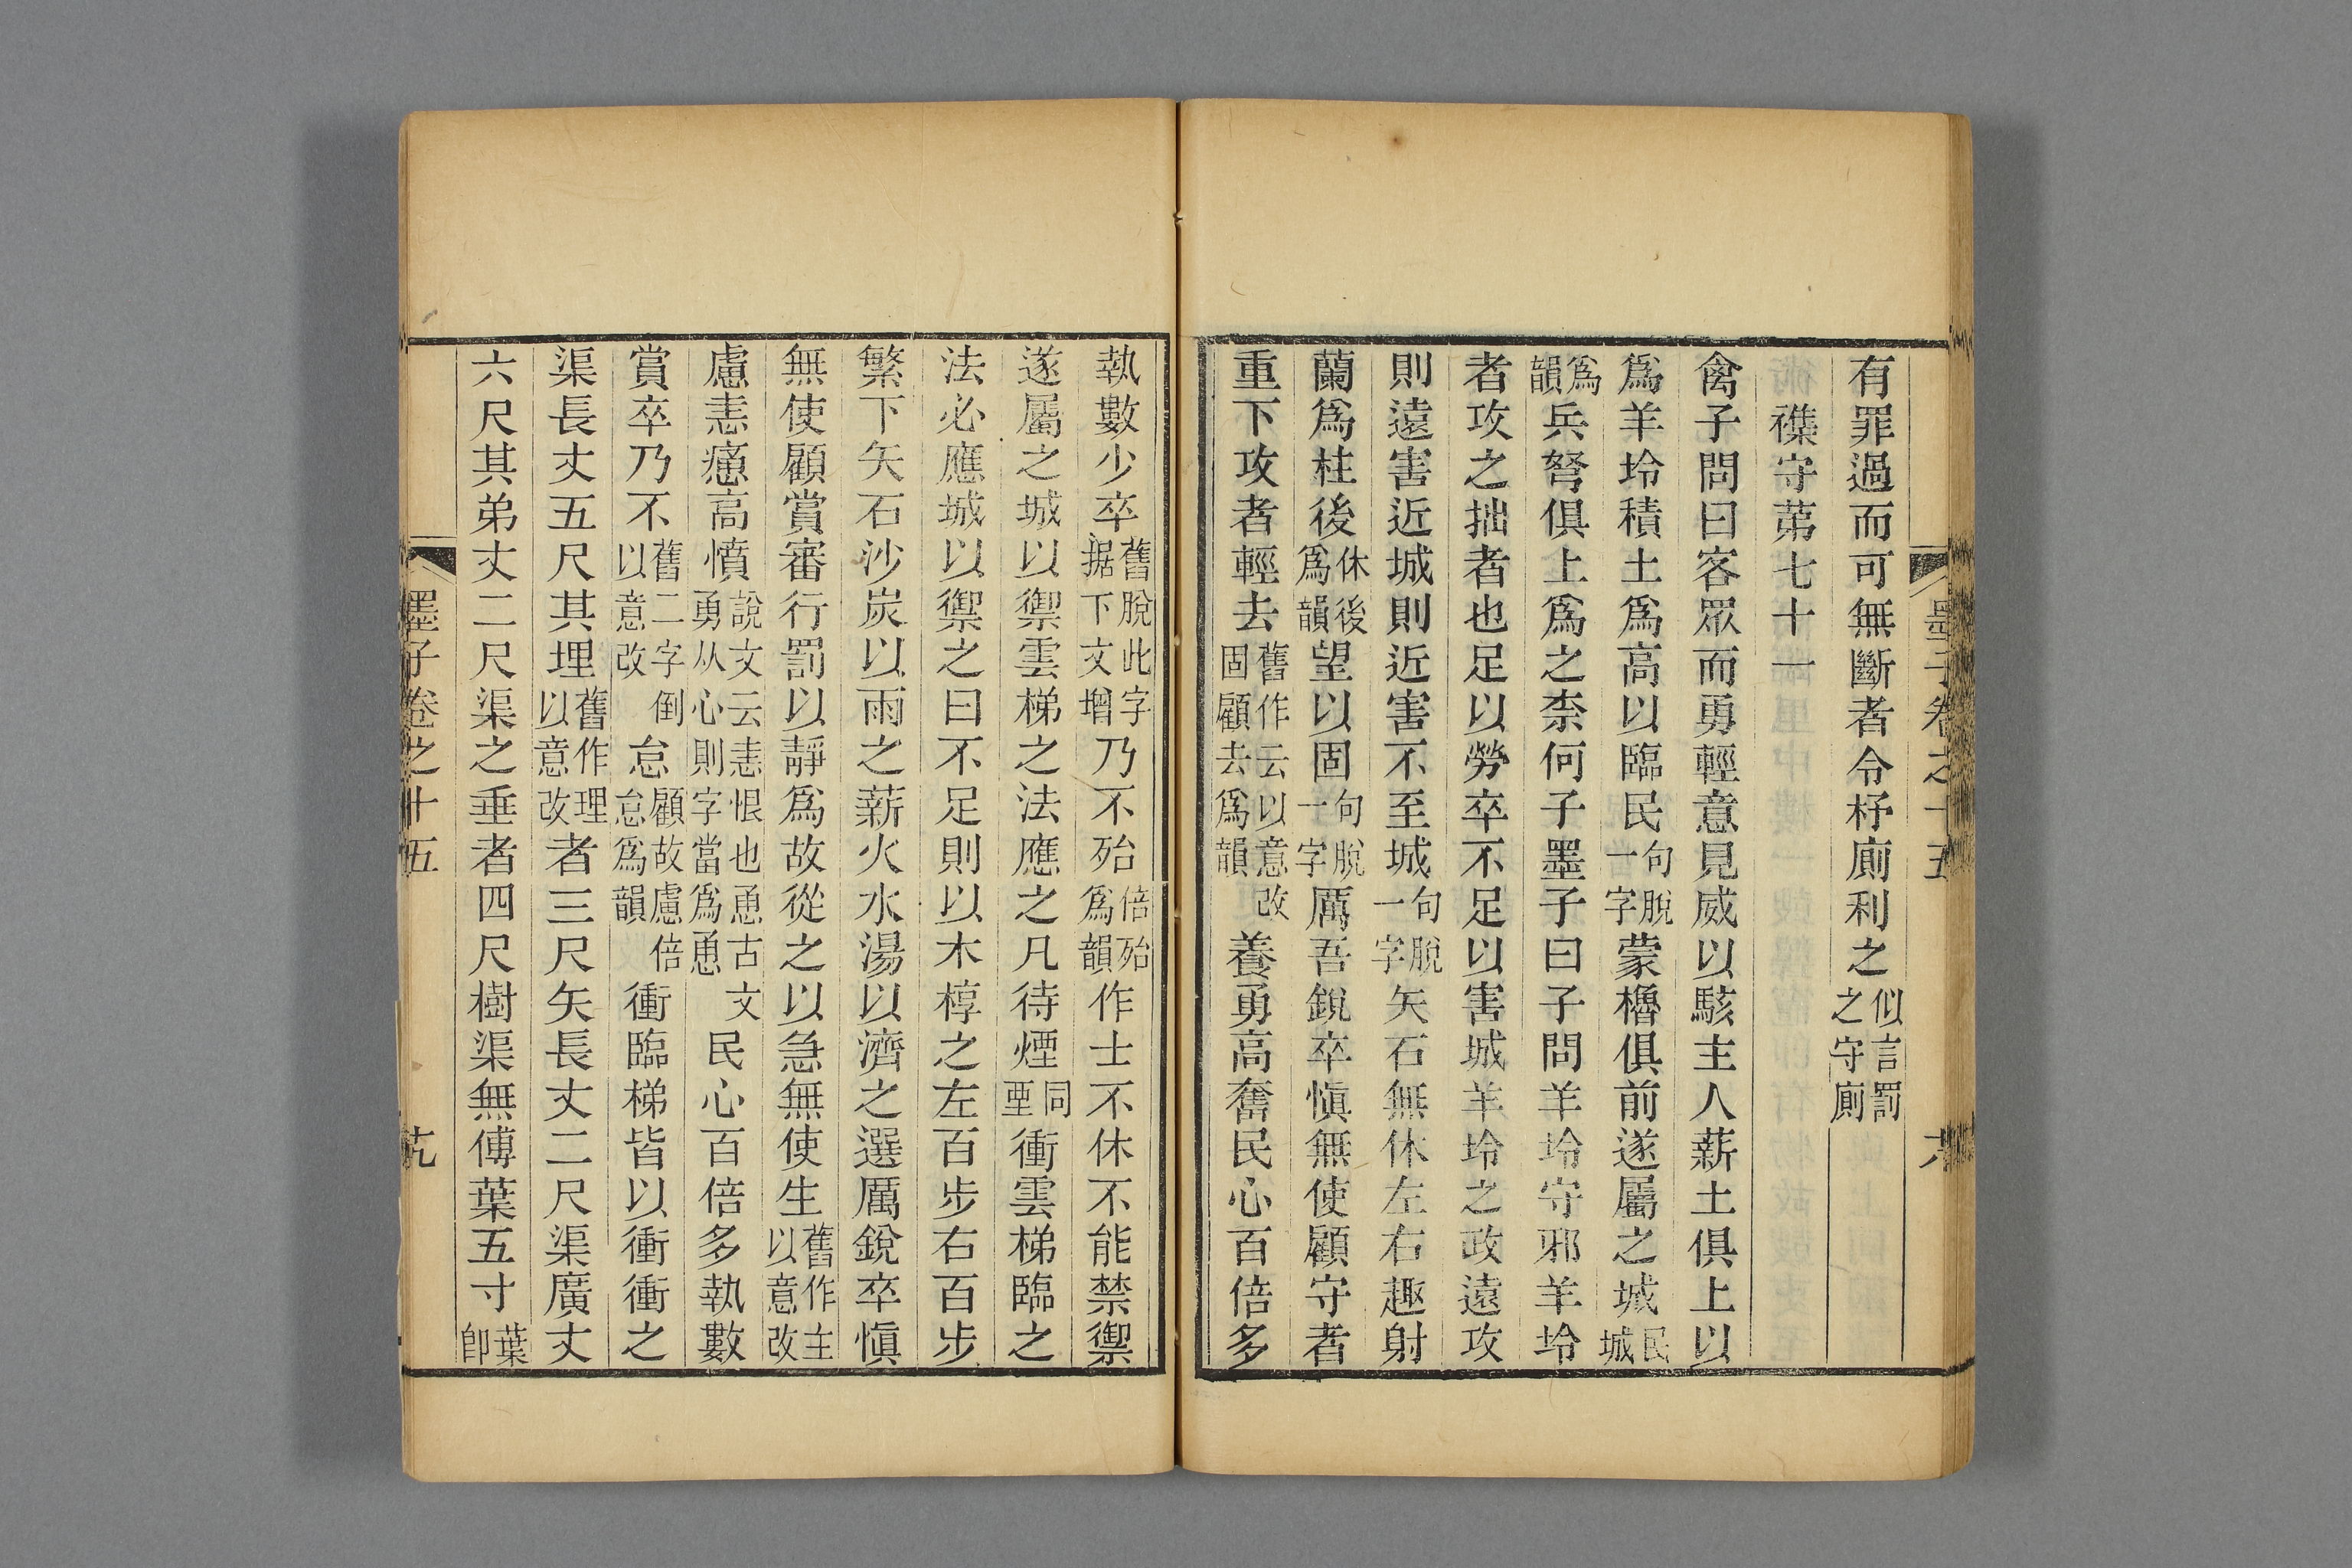 墨子卷之十五 六
有罪過而可無斷者令杼廁利之似言罰之守廁
襍守第七十一
禽子問曰客眾而勇輕意見威以駭主人薪土俱上以
爲羊坽積土爲高以臨民句脫一字蒙櫓俱前遂屬之城民城
爲韻兵弩俱上爲之柰何子墨子曰子問羊坽守邪羊坽
者攻之拙者也足以勞卒不足以害城羊坽之政遠攻
則遠害近城則近害不至城句脫一字矢石無休左右趣射
蘭爲柱後休後爲韻望以固句脫一字厲吾銳卒愼無使顧守者
重下攻者輕去舊作云固顧去以意改爲韻養勇高奮民心百倍多
執數少卒舊脫此字据下文增乃不殆倍殆爲韻作士不休不能禁禦
遂屬之城以禦雲梯之法應之凡待煙同堙衝雲梯臨之
法必應城以禦之曰不足則以木椁之左百步右百步
繁下矢石沙炭以雨之薪火水湯以濟之選厲銳卒愼
無使顧賞審行罰以靜爲故從之以急無使生舊作主以意改
慮恚㥷高憤說文云恚恨也恿古文勇从心則字當爲恿民心百倍多執數
賞卒乃不舊二字倒以意改怠顧故慮倍怠爲韻衝臨梯皆以衝衝之
渠長丈五尺其埋舊作理以意改者三尺矢長丈二尺渠廣丈
六尺其弟丈二尺渠之垂者四尺樹渠無傅葉五寸葉卽
墨子卷之十五